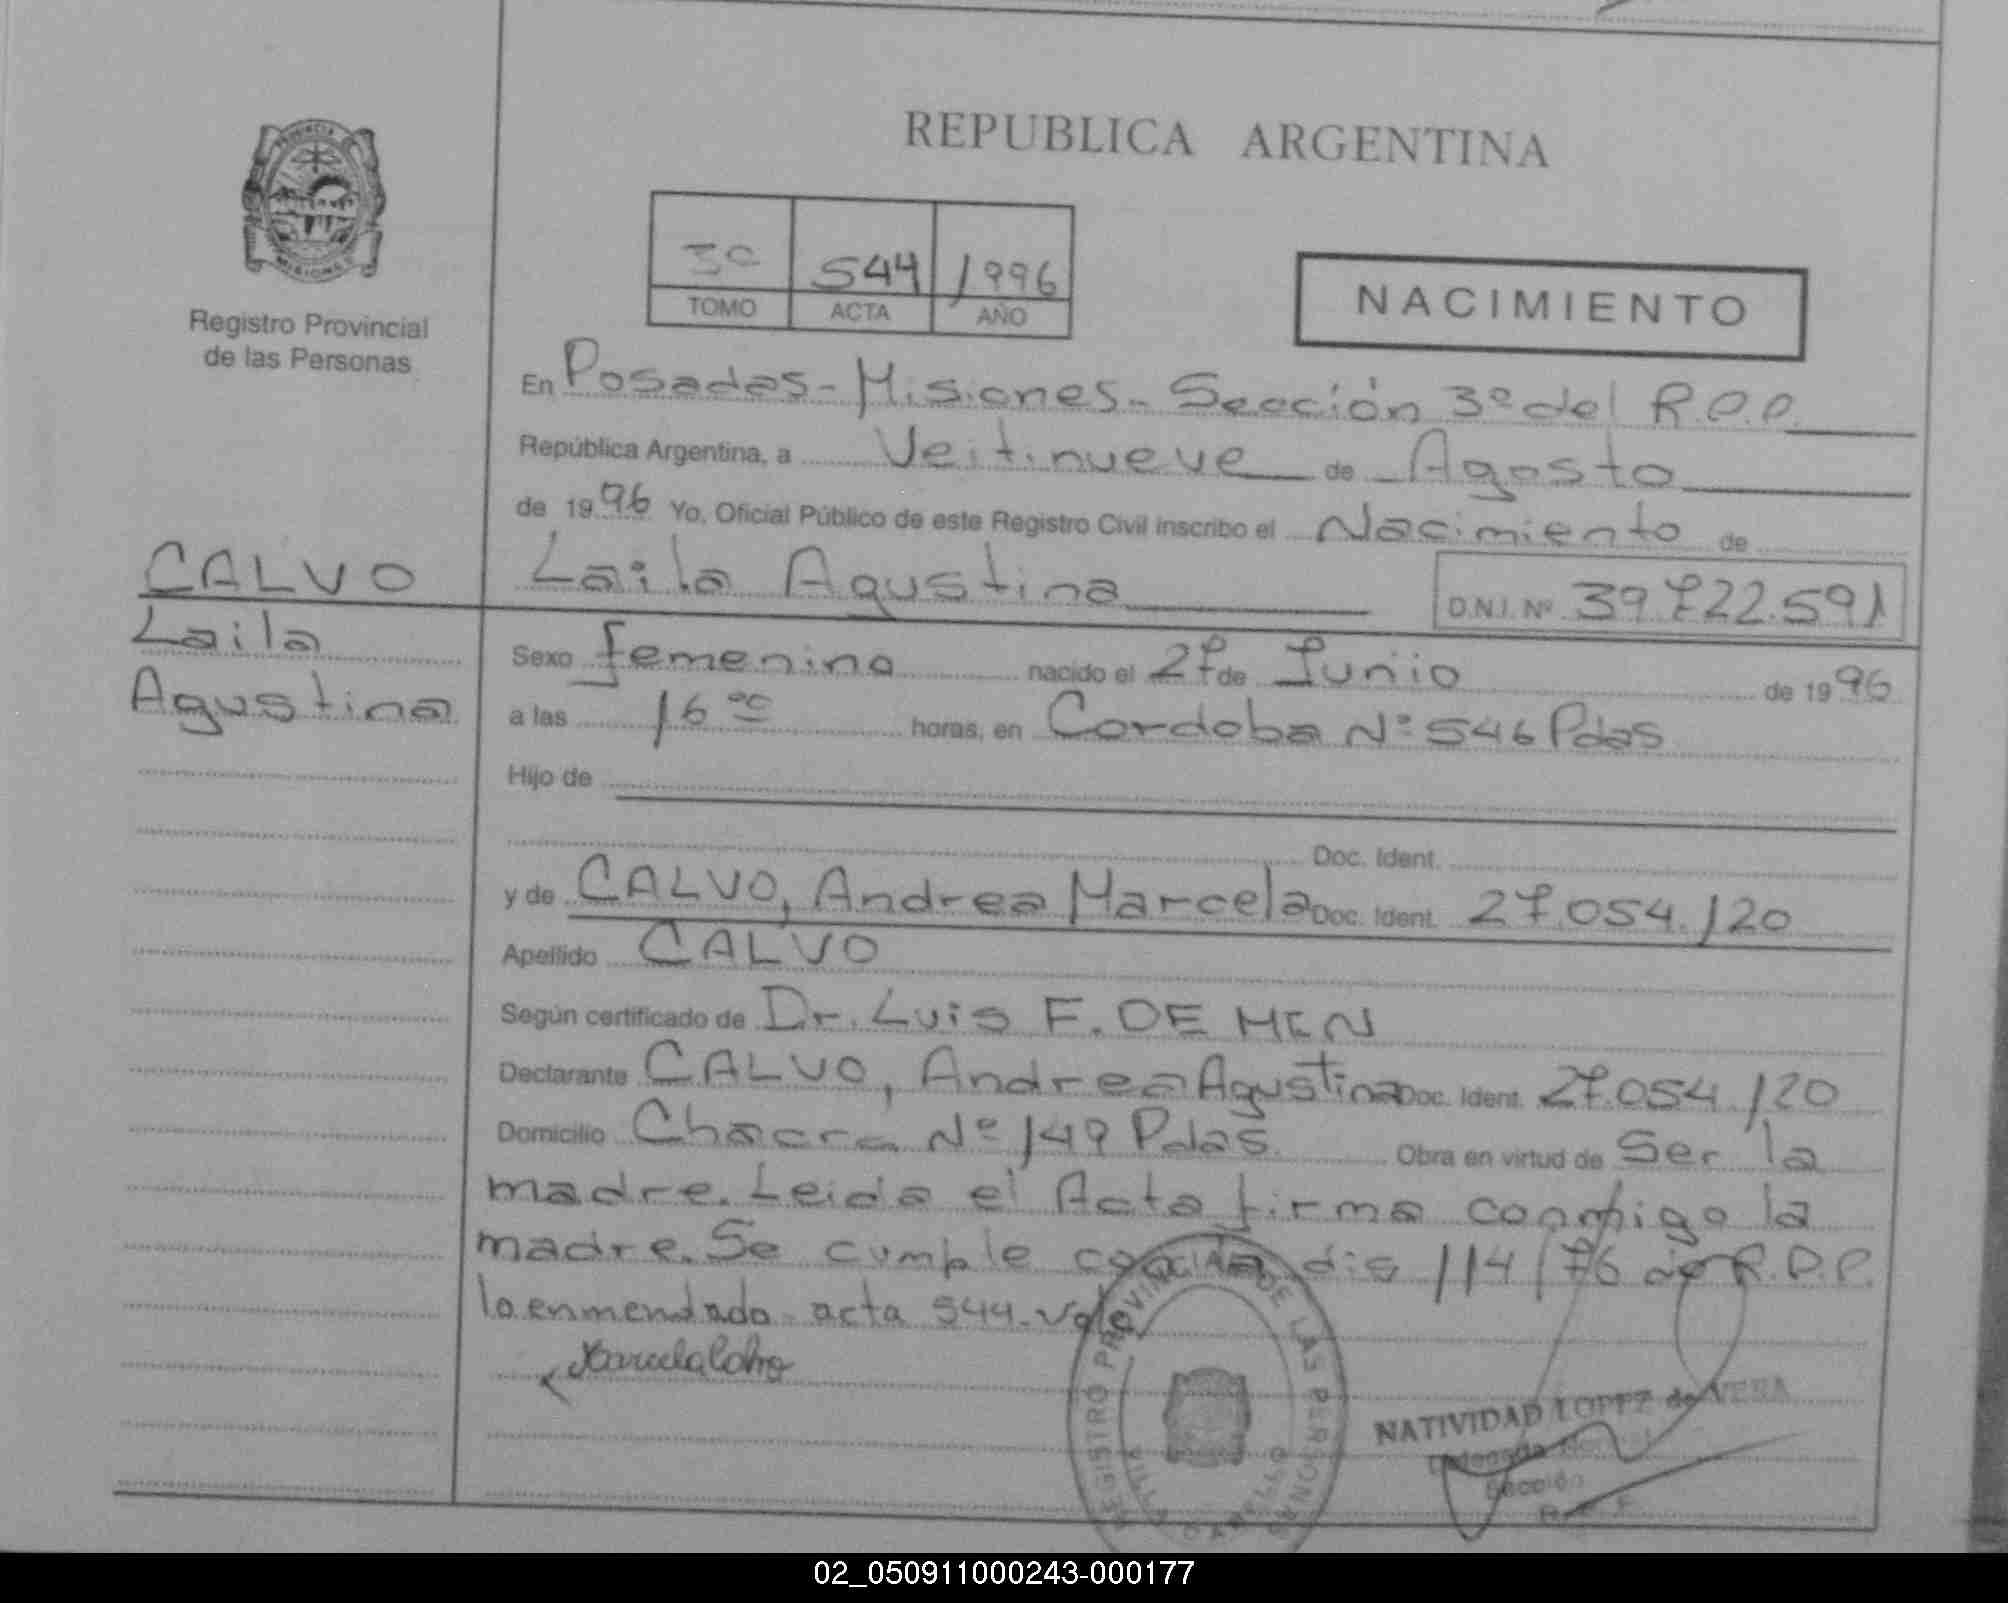 REPUBLICA ARGENTINA
PROVINCIA
MISIONES
Registro Provincial
de las Personas
3º 544 1996
TOMO ACTA AÑO
NACIMIENTO
En Posadas - Misiones - Sección 3º del R.P.P.
República Argentina, a Veitinueve de Agosto
de 1996 Yo, Oficial Público de este Registro Civil inscribo el Nacimiento de
Laila Agustina D.N.I. Nº 39.722.591
CALVO
Laila
Agustina
Sexo femenino nacido el 27 de Junio de 1996
a las 16 ºº horas, en Cordoba Nº 546 Pdas
Hijo de
Doc. Ident.
y de CALVO, Andrea Marcela Doc. Ident. 27.054.120
Apellido CALVO
Según certificado de Dr. Luis F. DE HEN
Declarante CALVO, Andrea Agustina Doc. Ident. 27.054.120
Domicilio Chacra Nº 149 Pdas. Obra en virtud de Ser la
madre. Leida el Acta firma conmigo la
madre. Se cumple con la dis 114/76 R.P.P.
lo enmendado acta 544 - Vale
Marcela Calvo
REGISTRO PROVINCIAL DE LAS PERSONAS
NATIVIDAD LOPEZ de VERA
Sección
02_050911000243-000177